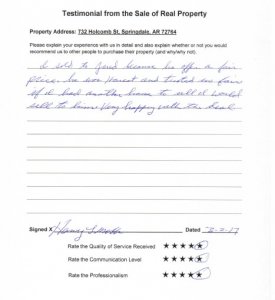 Testimonial from the Sale of Real Property
Property Address: 732 Holcomb St, Springdale, AR 72764
Please explain your experience with us in detail and also explain whether or not you would
recommend us to other people to purchase their property (and why/why not).
I sold to because he offer a fair
price. he was Honest and trusted me fair
if I had another home to sell I would
sell to him. Very happy with the deal
Signed X Dated
Rate the Quality of Service Received ★★★★★
Rate the Communication Level ★★★★★
Rate the Professionalism ★★★★★